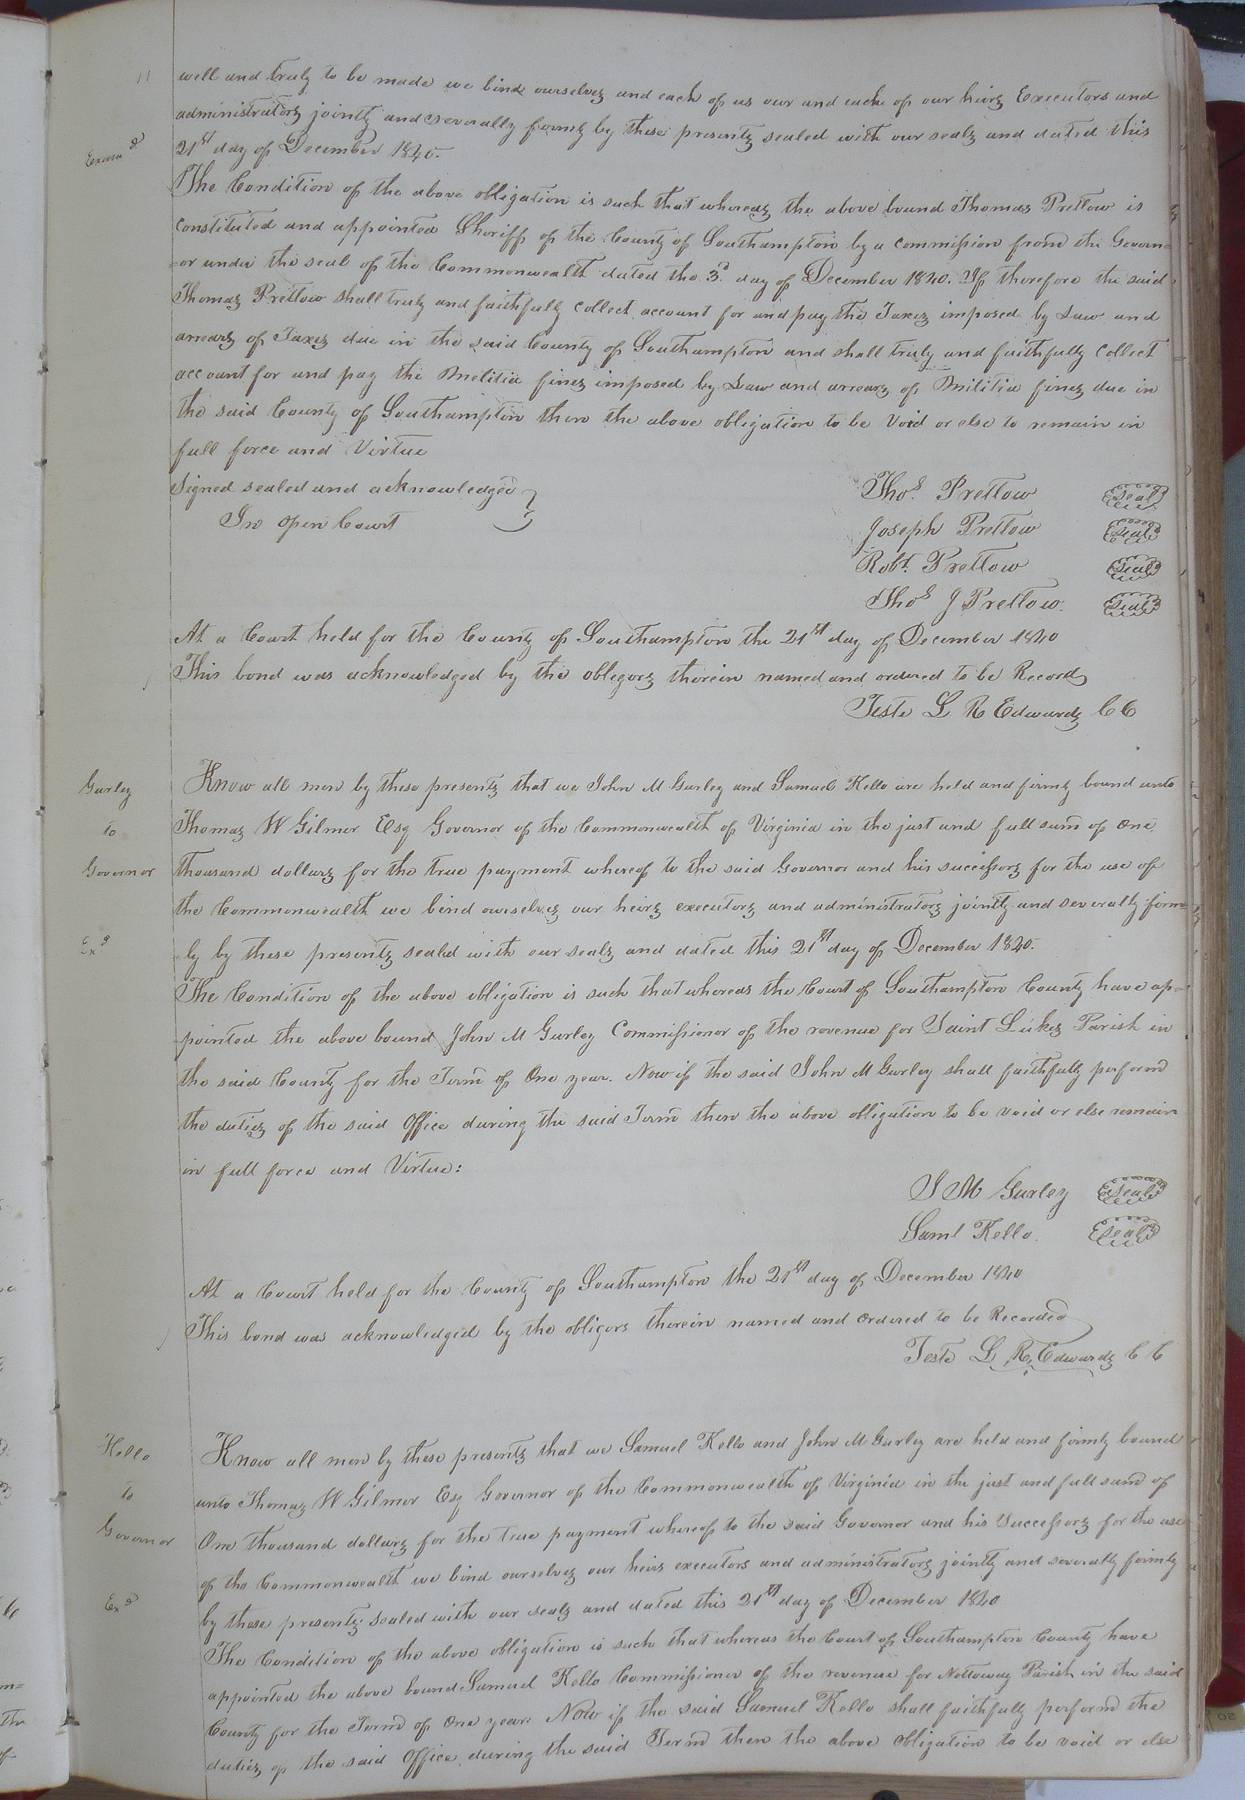 well and truly to be made we bind ourselves and each of us our and each of our heirs Executors and
administrators jointly and severally firmly by these presents sealed with our seals and dated this
Exam d
21st day of December 1840.
The Condition of the above obligation is such that whereas the above bound Thomas Pretlow is
constituted and appointed Sheriff of the County of Southampton by a commission from the Govern=
=or under the seal of the Commonwealth dated the 3d day of December 1840. If therefore the said
Thomas Pretlow shall truly and faithfully collect account for and pay the Taxes imposed by Law and
arrears of Taxes due in the said County of Southampton and shall truly and faithfully collect
account for and pay the Melitia fines imposed by Law and arrears of Militia fines due in
the said County of Southampton then the above obligation to be Void or else to remain in
full force and Virtue
Signed sealed and acknowledged }
In open Court
Thos. Pretlow Seal
Joseph Pretlow Seal
Robt. Pretlow Seal
Thos J Pretlow. Seal
At a Court held for the County of Southampton the 21st day of December 1840
This bond was acknowledged by the oblegors therein named and ordered to be Recordd
Teste L R Edwards CC
Gurley
to
Governor
Exd
Know all men by these presents that we John M Gurley and Samuel Kello are held and firmly bound unto
Thomas W Gilmer Esq Governor of the Commonwealth of Virginia in the just and full sum of one
thousand dollars for the true payment whereof to the said Governor and his successors for the use of
the Commonwealth we bind ourselves our heirs executors and administrators jointly and severally firm=
ly by these presents sealed with our seals and dated this 21st day of December 1840.
The Condition of the above obligation is such that whereas the Court of Southampton County have ap=
pointed the above bound John M Gurley Commissioner of the revenue for Saint Lukes Parish in
the said County for the Term of One year. Now if the said John M Gurley shall faithfully perform
the duties of the said Office during the said Term then the above obligation to be void or else remain
in full force and Virtue:
J M Gurley Seal
Saml Kello. Seal
At a Court held for the County of Southampton the 21st day of December 1840
This bond was acknowledged by the obligors therein named and ordered to be Recorded
Teste L R, Edwards CC
Kello
to
Governor
Exd
Know all men by these presents that we Samuel Kello and John M Gurley are held and firmly bound
unto Thomas W Gilmer Esq Governor of the Commonwealth of Virginia in the just and full sum of
One thousand dollars for the true payment whereof to the said Governor and his Successors for the use
of the Commonwealth we bind ourselves our heirs executors and administrators jointly and severally firmly
by these presents sealed with our seals and dated this 21st day of December 1840
The Condition of the above obligation is such that whereas the Court of Southampton County have
appointed the above bound Samuel Kello Commissioner of the revenue for Nottoway Parish in the said
County for the Term of One year. Now if the said Samuel Kello shall faithfully perform the
duties of the said Office during the said Term then the above obligation to be void or else